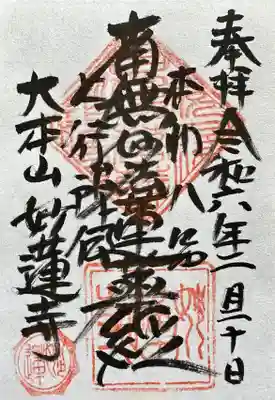 奉拝令和六年二月二十日
本門八品
南無妙法蓮華経
上行所伝
大本山妙蓮寺